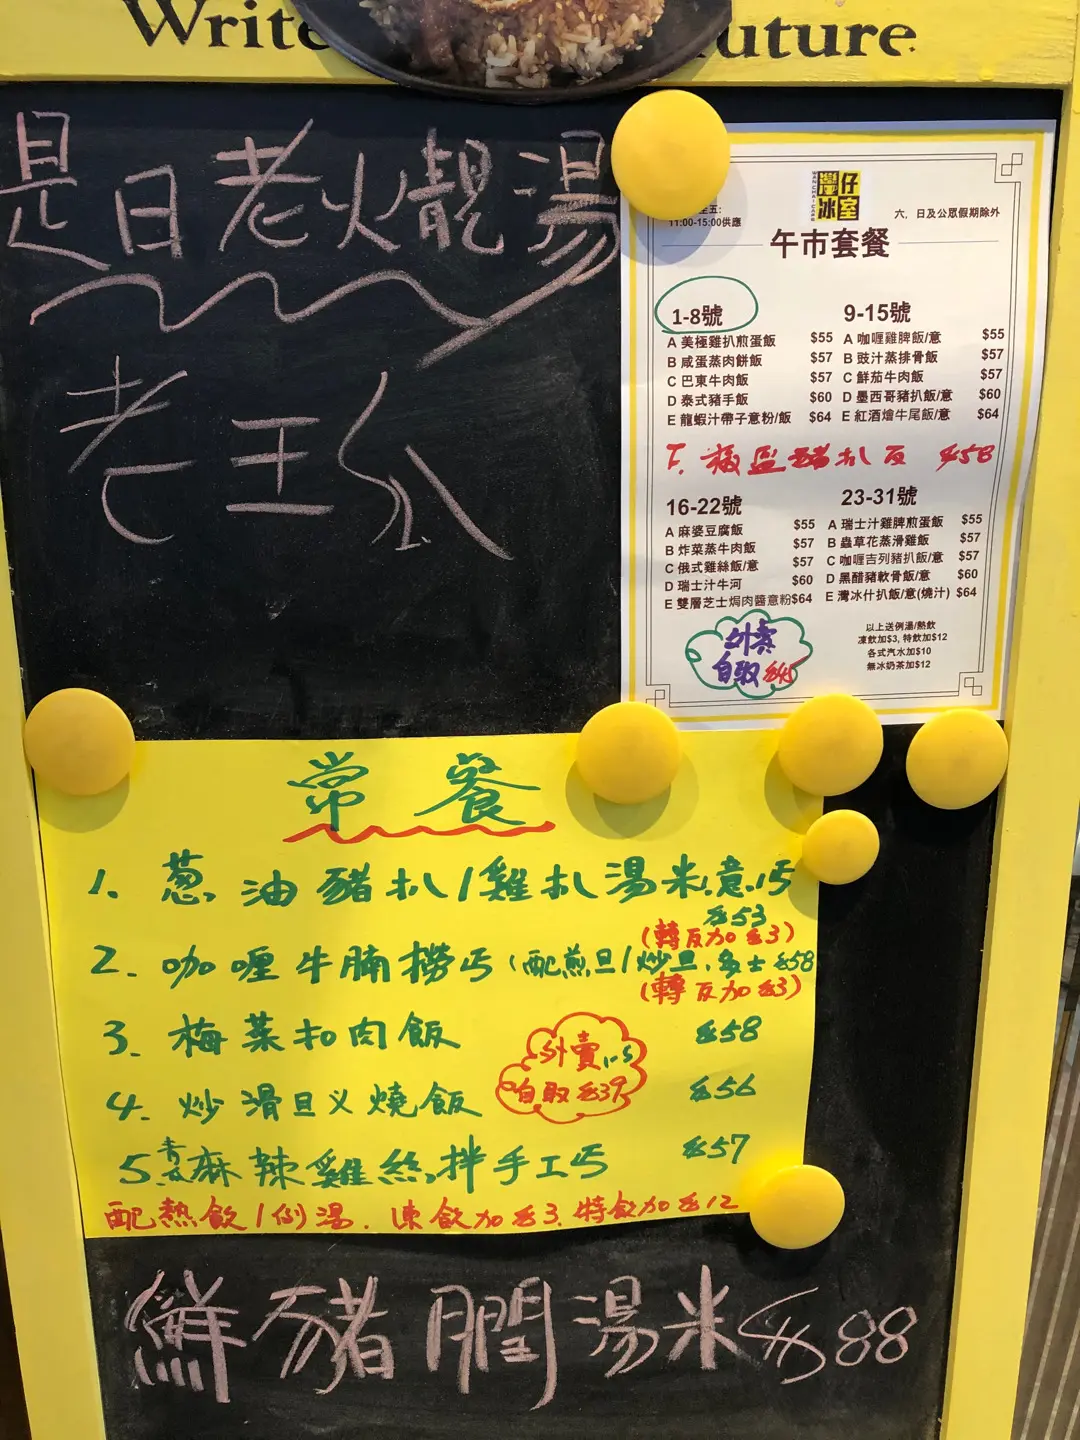 Write
uture
是日老火靚湯
老王瓜
灣仔
冰室
至五:
11:00-15:00供應
六, 日及公眾假期除外
午市套餐
1-8號
A 美極雞扒煎蛋飯 $55
B 咸蛋蒸肉餅飯 $57
C 巴東牛肉飯 $57
D 泰式豬手飯 $60
E 龍蝦汁帶子意粉/飯 $64
9-15號
A 咖喱雞脾飯/意 $55
B 豉汁蒸排骨飯 $57
C 鮮茄牛肉飯 $57
D 墨西哥豬扒飯/意 $60
E 紅酒燴牛尾飯/意 $64
F. 椒鹽豬扒反 $58
16-22號
A 麻婆豆腐飯 $55
B 炸菜蒸牛肉飯 $57
C 俄式雞絲飯/意 $57
D 瑞士汁牛河 $60
E 雙層芝士焗肉醬意粉 $64
23-31號
A 瑞士汁雞脾煎蛋飯 $55
B 蟲草花蒸滑雞飯 $57
C 咖喱吉列豬扒飯/意 $57
D 黑醋豬軟骨飯/意 $60
E 灣冰什扒飯/意(燒汁) $64
外賣
自取 $45
以上送例湯/熱飲
凍飲加$3, 特飲加$12
各式汽水加$10
無冰奶茶加$12
常餐
1. 葱油豬扒/雞扒湯米.意.丐 $53
(轉反加$3)
2. 咖喱牛腩撈丐(配煎旦/炒旦.多士 $58
(轉反加$3)
3. 梅菜扣肉飯 $58
外賣1-5
自取$39
4. 炒滑旦义燒飯 $56
5. 麻辣雞絲拌手工丐 $57
配熱飲/例湯. 凍飲加$3. 特飲加$12
鮮豬膶湯米 $88